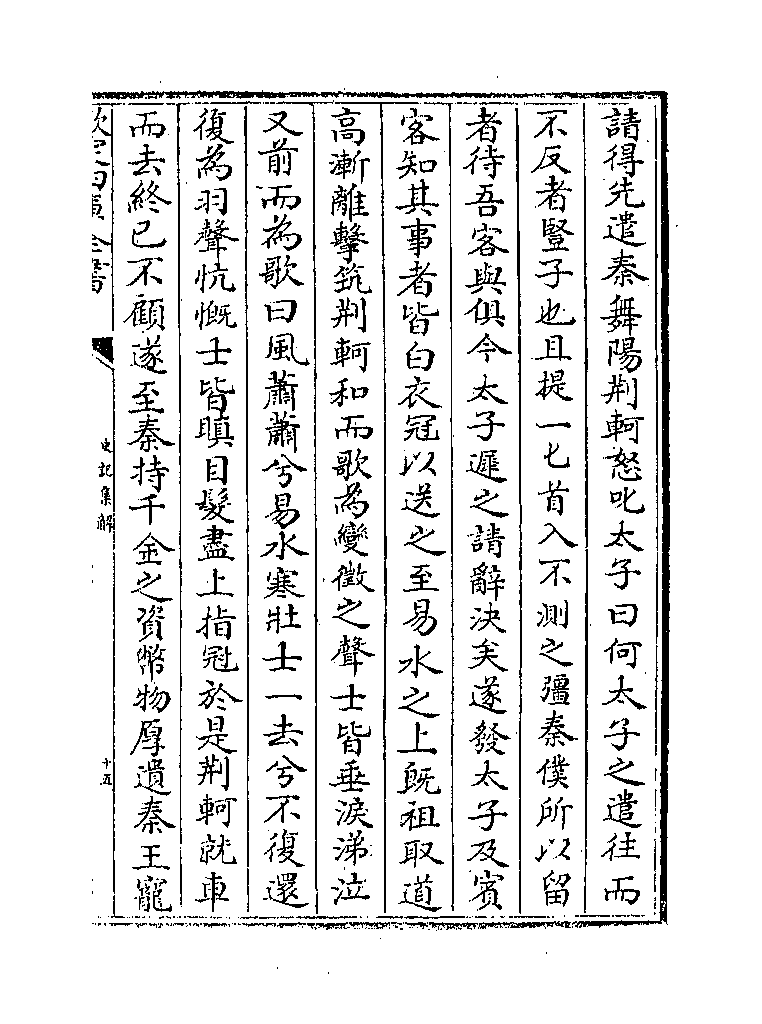 請得先遣秦舞陽荆軻怒叱太子曰何太子之遣往而
不反者豎子也且提一匕首入不測之彊秦僕所以留
者待吾客與俱今太子遲之請辭決矣遂發太子及賓
客知其事者皆白衣冠以送之至易水之上既祖取道
高漸離擊筑荆軻和而歌為變徵之聲士皆垂淚涕泣
又前而為歌曰風蕭蕭兮易水寒壯士一去兮不復還
復為羽聲忼慨士皆瞋目髮盡上指冠於是荆軻就車
而去終已不顧遂至秦持千金之資幣物厚遺秦王寵
欽定四庫全書
史記集解
十五